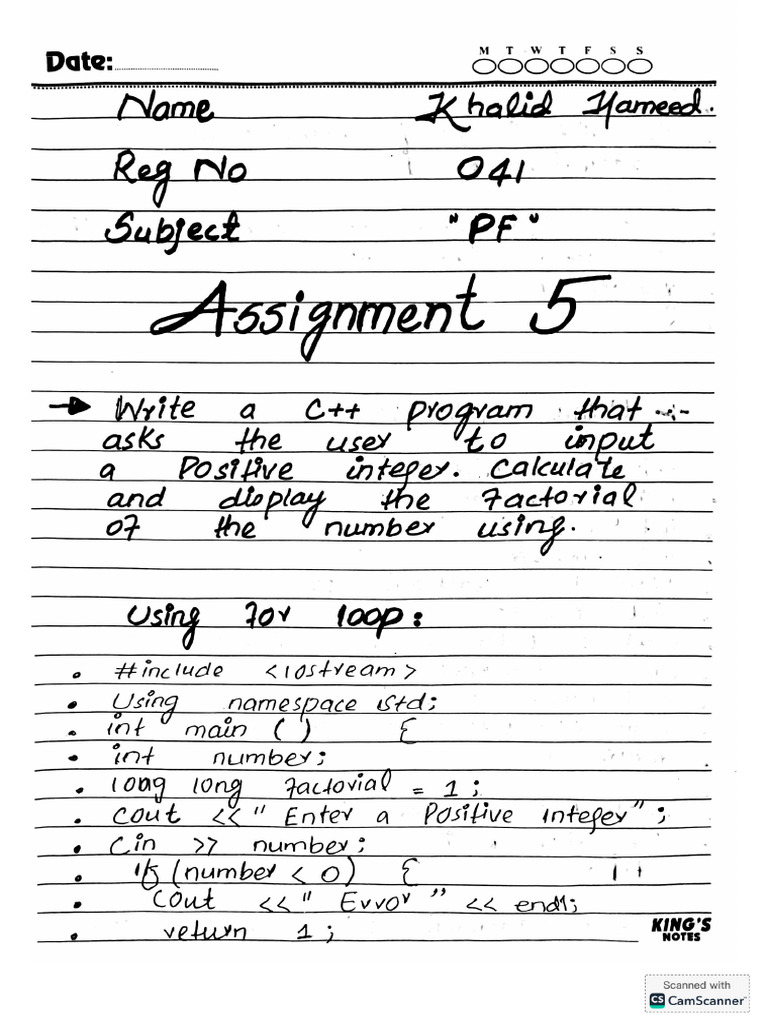 Date:
M T W T F S S
Name Khalid Hameed.
Reg No 041
Subject "PF"
Assignment 5
→ Write a C++ program that
asks the user to input
a Positive integer. Calculate
and display the factorial
of the number using.
Using for loop:
• #include <iostream>
• Using namespace std;
• int main () {
• int number;
• long long factorial = 1;
• cout << "Enter a Positive Integer";
• Cin >> number;
• if (number < 0) {
• cout << "Error" << endl;
• return 1;
KING'S
NOTES
Scanned with
CS CamScanner